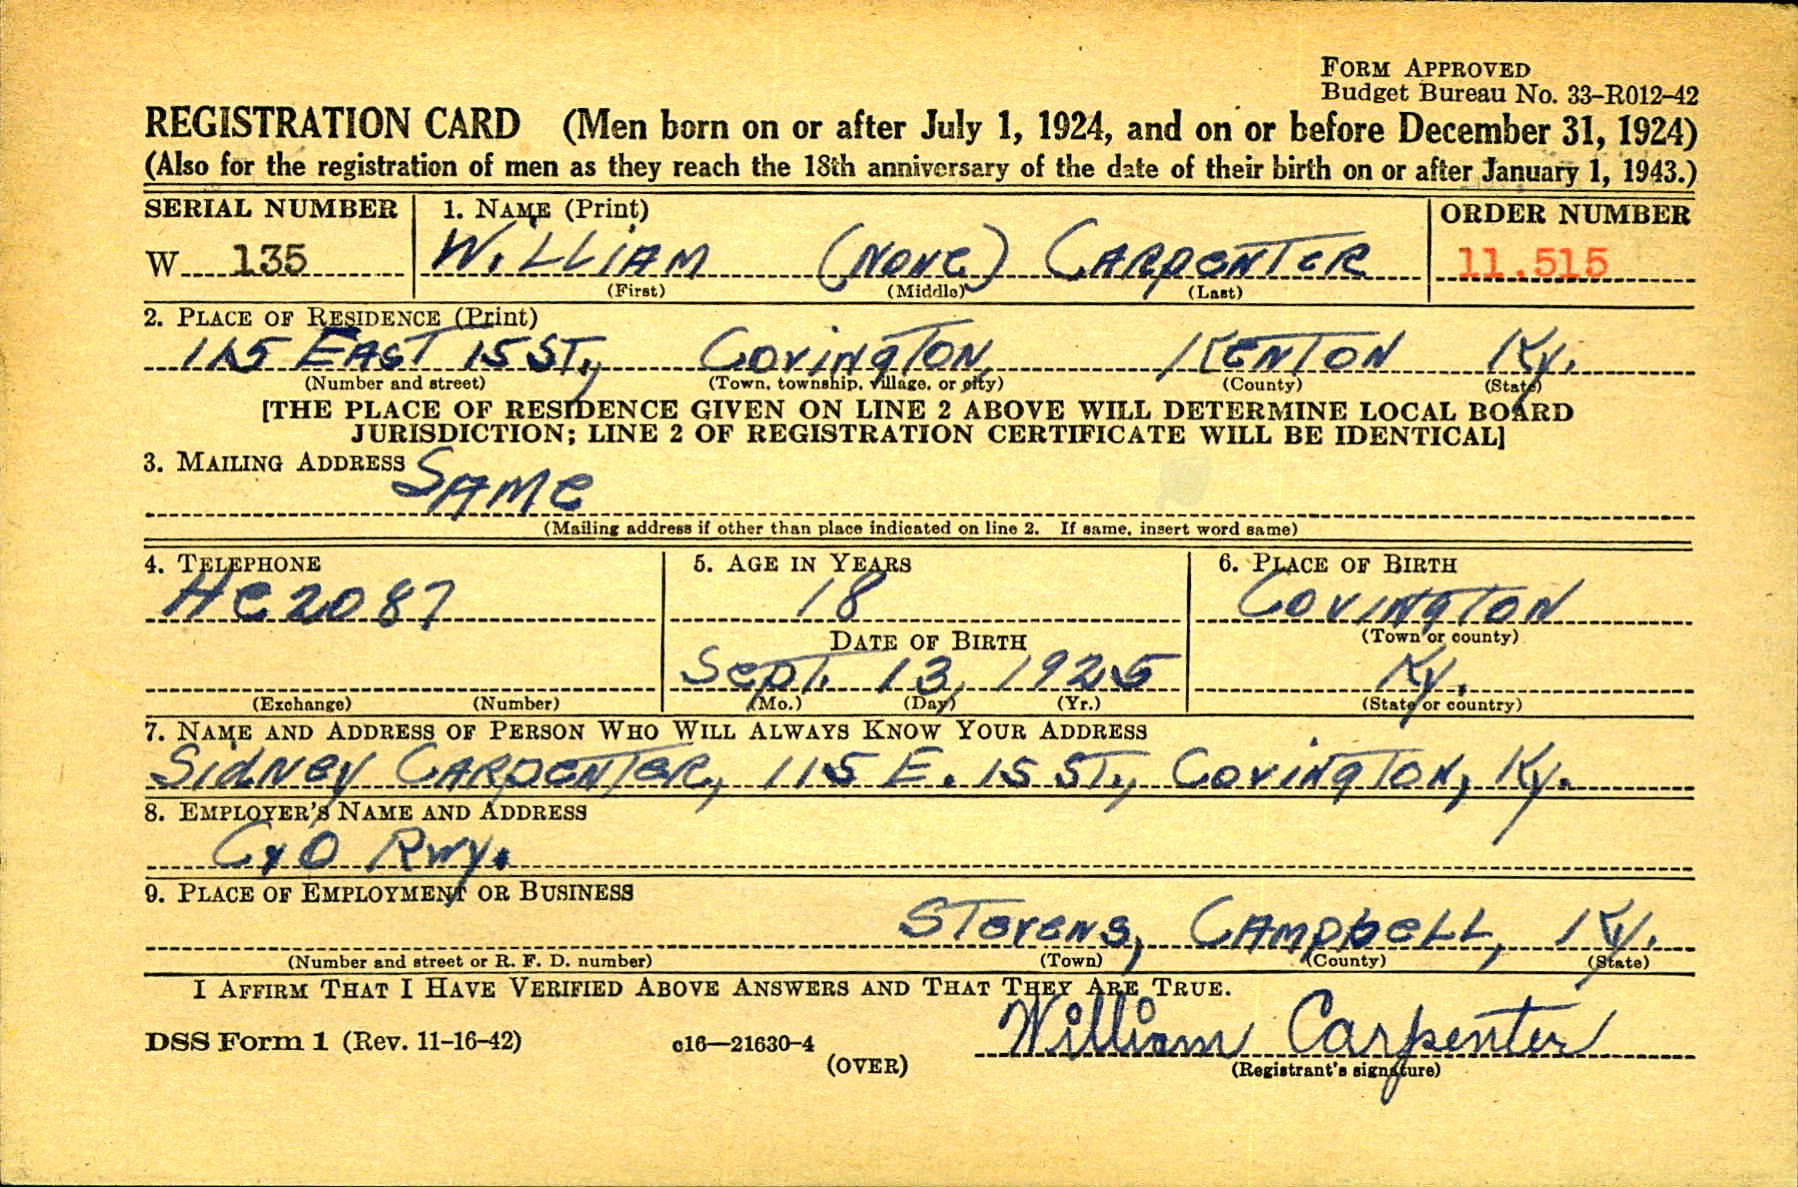 FORM APPROVED
Budget Bureau No. 33-R012-42
REGISTRATION CARD (Men born on or after July 1, 1924, and on or before December 31, 1924)
(Also for the registration of men as they reach the 18th anniversary of the date of their birth on or after January 1, 1943.)
SERIAL NUMBER 1. NAME (Print) ORDER NUMBER
W 135 WILLIAM (NONE) CARPENTER 11,515
(First) (Middle) (Last)
2. PLACE OF RESIDENCE (Print)
115 EAST 15 ST., COVINGTON, KENTON Ky.
(Number and street) (Town, township, village, or city) (County) (State)
[THE PLACE OF RESIDENCE GIVEN ON LINE 2 ABOVE WILL DETERMINE LOCAL BOARD
JURISDICTION; LINE 2 OF REGISTRATION CERTIFICATE WILL BE IDENTICAL]
3. MAILING ADDRESS
SAME
(Mailing address if other than place indicated on line 2. If same, insert word same)
4. TELEPHONE 5. AGE IN YEARS 6. PLACE OF BIRTH
HE 2087 18 COVINGTON
DATE OF BIRTH (Town or county)
Sept. 13, 1925 Ky.
(Exchange) (Number) (Mo.) (Day) (Yr.) (State or country)
7. NAME AND ADDRESS OF PERSON WHO WILL ALWAYS KNOW YOUR ADDRESS
SIDNEY CARPENTER, 115 E. 15 ST., COVINGTON, Ky.
8. EMPLOYER'S NAME AND ADDRESS
C & O Rwy.
9. PLACE OF EMPLOYMENT OR BUSINESS
STEVENS, CAMPBELL, Ky.
(Number and street or R. F. D. number) (Town) (County) (State)
I AFFIRM THAT I HAVE VERIFIED ABOVE ANSWERS AND THAT THEY ARE TRUE.
DSS Form 1 (Rev. 11-16-42) c16—21630-4 William Carpenter
(OVER) (Registrant's signature)